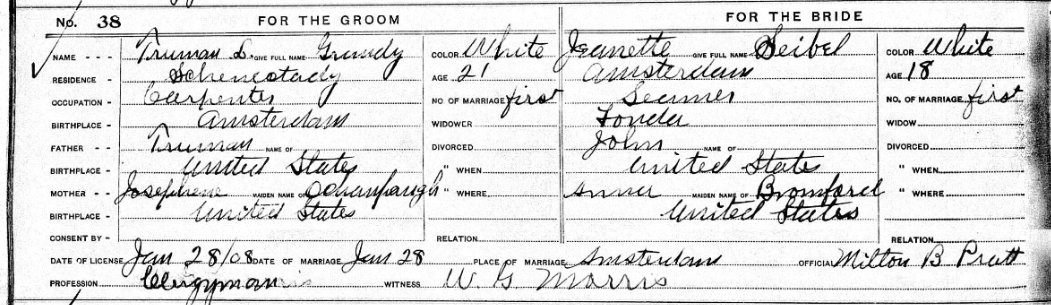 No. 38 FOR THE GROOM FOR THE BRIDE
NAME - - - Truman D. GIVE FULL NAME Grundy COLOR White Jeanette GIVE FULL NAME Seibel COLOR White
RESIDENCE - Schenectady AGE 21 Amsterdam AGE 18
OCCUPATION - Carpenter NO. OF MARRIAGE first Seamer NO. OF MARRIAGE first
BIRTHPLACE - Amsterdam WIDOWER Fonda WIDOW
FATHER - - Truman NAME OF DIVORCED John NAME OF DIVORCED
BIRTHPLACE - United States " WHEN United States " WHEN
MOTHER - - Josephene MAIDEN NAME OF " WHERE MAIDEN NAME OF Bromford " WHERE
BIRTHPLACE - United States United States
CONSENT BY - RELATION RELATION
DATE OF LICENSE Jan 28/08 DATE OF MARRIAGE Jan 28 PLACE OF MARRIAGE Amsterdam OFFICIAL Milton B Pratt
PROFESSION Clergyman WITNESS W. G Morris